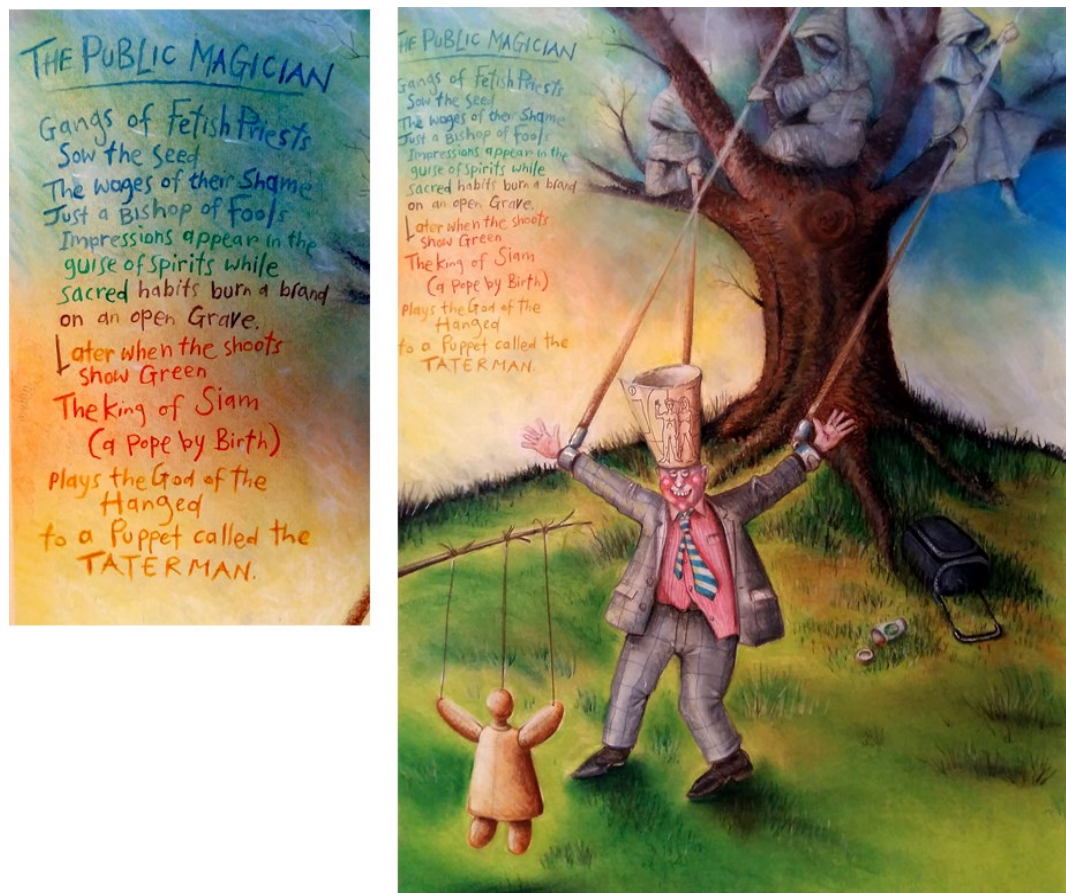 THE PUBLIC MAGICIAN
Gangs of Fetish Priests
Sow the Seed
The wages of their Shame
Just a Bishop of Fools
Impressions appear in the
guise of spirits while
sacred habits burn a brand
on an open Grave.
Later when the shoots
show Green
The King of Siam
(a Pope by Birth)
Plays the God of the
Hanged
to a Puppet called the
TATERMAN.
HE PUBLIC MAGICIAN
Gangs of Fetish Priests
Sow the Seed
The wages of their Shame
Just a Bishop of Fools
Impressions appear in the
guise of spirits while
sacred habits burn a brand
on an open Grave.
Later when the shoots
show Green
The King of Siam
(a Pope by Birth)
plays the God of the
Hanged
to a Puppet called the
TATERMAN.